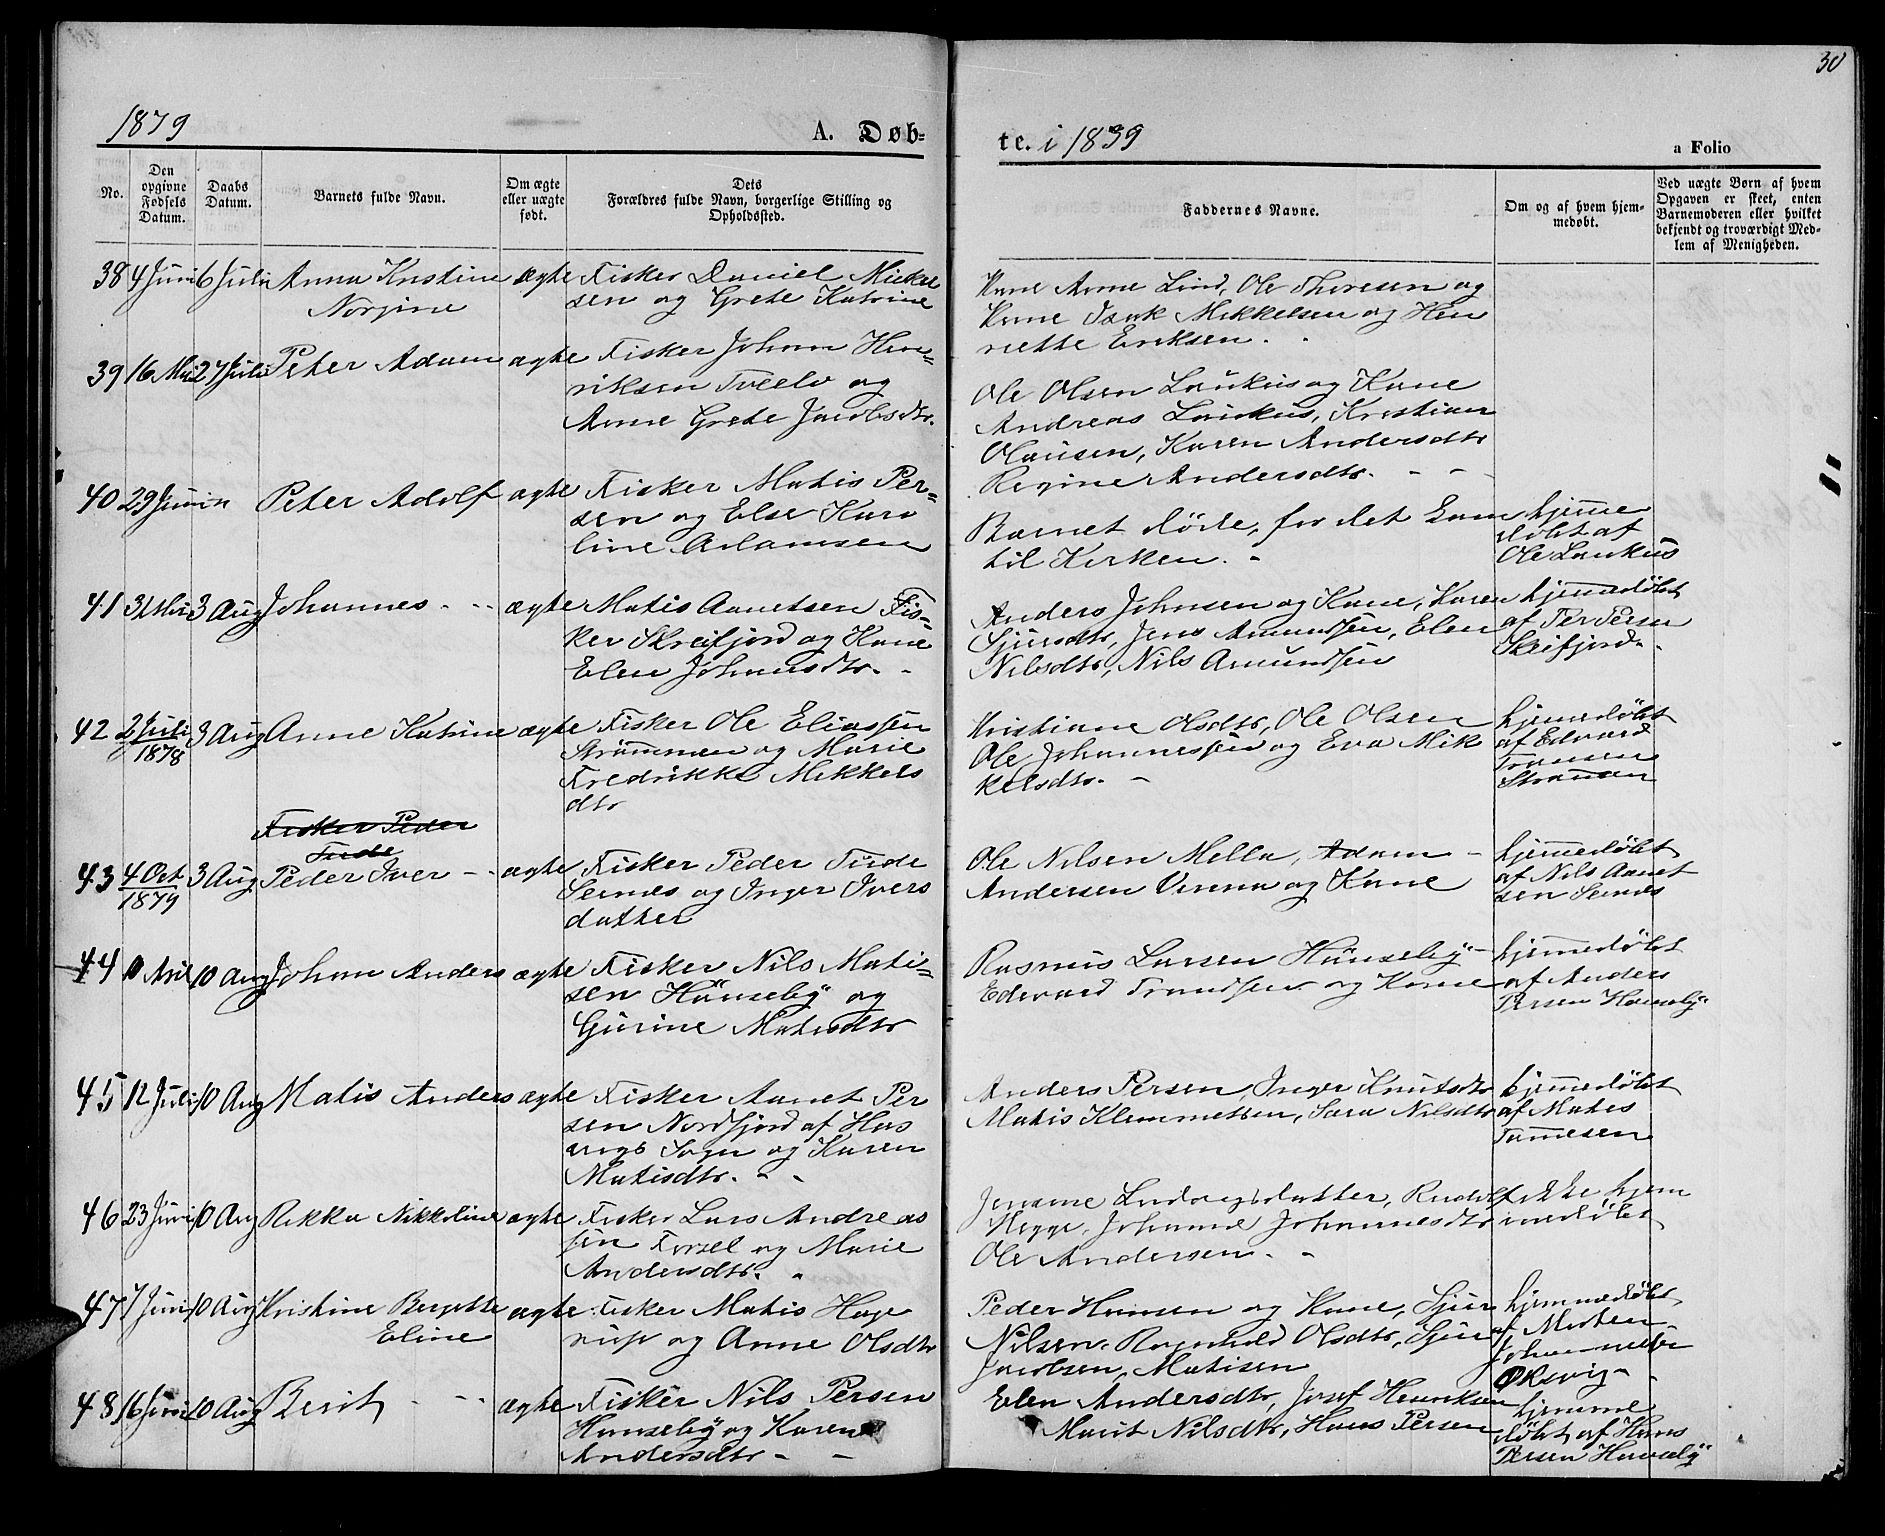 30
1879
A. Døb-
te. i 1879
a Folio
No.
Den
opgivne
Fødsels
Datum.
Daabs
Datum.
Barnets fulde Navn.
Om ægte
eller uægte
født.
Dets
Forældres fulde Navn, borgerlige Stilling og
Opholdssted.
Faddernes Navne.
Om og af hvem hjem-
medøbt.
Ved uægte Børn af hvem
Opgaven er skeet, enten
Barnemoderen eller hvilket
bekjendt og troværdigt Med-
lem af Menigheden.
38 4 Juni 6 Juli Anna Kristine ægte Fisker Daniel Mickel
Norgine sen og Grete Katrine
Kone Anne Lind, Ole Thoresen og
Kone Isak Mikkelsen og Hen
riette Eriksen.
39 16 Mai 27 Juli Peter Adam ægte Fisker Johan Hen-
riksen Tveelv og
Anne Grete Jacobsdtr.
Ole Olsen Laukus og Kone
Andreas Laukus, Kristian
Olausen, Karen Andersdtr
Regine Andersdtr. - -
40 29 Juni Peter Adolf ægte Fisker Matis Per-
sen og Else Karo
line Adamsen
Barnet døde, før det kom
til Kirken. -
hjemme
døbt af
Ole Laukus
41 31 Mai 3 Aug Johannes - - ægte Matis Aanetsen Fis-
ker Skreifjord og Kone
Elen Johannsdtr. -
Anders Johnsen og Kone, Karen
Sjursdtr, Jens Amundsen, Elen
Nilsdtr, Nils Amundsen
hjemmedøbt
af Per Persen
Skreifjord.
42 2 Juli 3 Aug Anne Katrine ægte Fisker Ole Eliassen
1878
Strømmen og Marie
Fredrikke Mikkels
dtr
Kristiane Olsdtr, Ole Olsen
Ole Johannessen og Eva Mik
kelsdtr. -
hjemedøbt
af Edvard
Transen
Strømmen
Fisker Peder
Tude
43 4 Oct 3 Aug Peder Iver - - ægte Fisker Peder Tude
1879
Seines og Inger Ivers
datter
Ole Nilsen Mella, Adam -
Andersen Venna og Kone
hjemmedøbt
af Nils Aanet
sen Seines
44 10 April 10 Aug Johan Anders ægte Fisker Nils Mati-
sen Hønseby og
Gurine Matisdtr
Rasmus Larsen Hønseby -
Edevard Trandsen og Kone
hjemmedøbt
af Anders
Persen Hønseby
45 12 Juli 10 Aug Matis Anders ægte Fisker Aanet Per
sen Nordfjord af Has
vigs Sogn og Karen
Matisdtr. - -
Anders Persen, Inger Knutsdtr
Matis Klemmetsen, Sara Nilsdtr
hjemmedøbt
af Matis
Tomesen
46 23 Juni 10 Aug Rikka Nikkoline ægte Fisker Lars Andreas
sen Forsel og Marie
Andersdtr. -
Jensine Ludvigsdatter, Rudolf
Hegge, Johanne Johannesdtr
Ole Andersen. -
ikke hjem
medøbt
47 7 Juni 10 Aug Kristine Bergitte ægte Fisker Matis Hage
Eline
rup og Anne Olsdtr
Peder Hansen og Kone, Sjur
Nilsen, Ragnhild Olsdtr, Sjur
Jacobsen, Matisen
hjemmedøbt
af Morten
Johannessen
Øksvig -
48 16 Juni 10 Aug Berit - - ægte Fisker Nils Persen
Hønseby og Karen
Andersdtr - -
Elen Andersdtr, Josef Henriksen
Marit Nilsdtr, Hans Persen
hjemme
døbt af Hans
Persen Hønseby